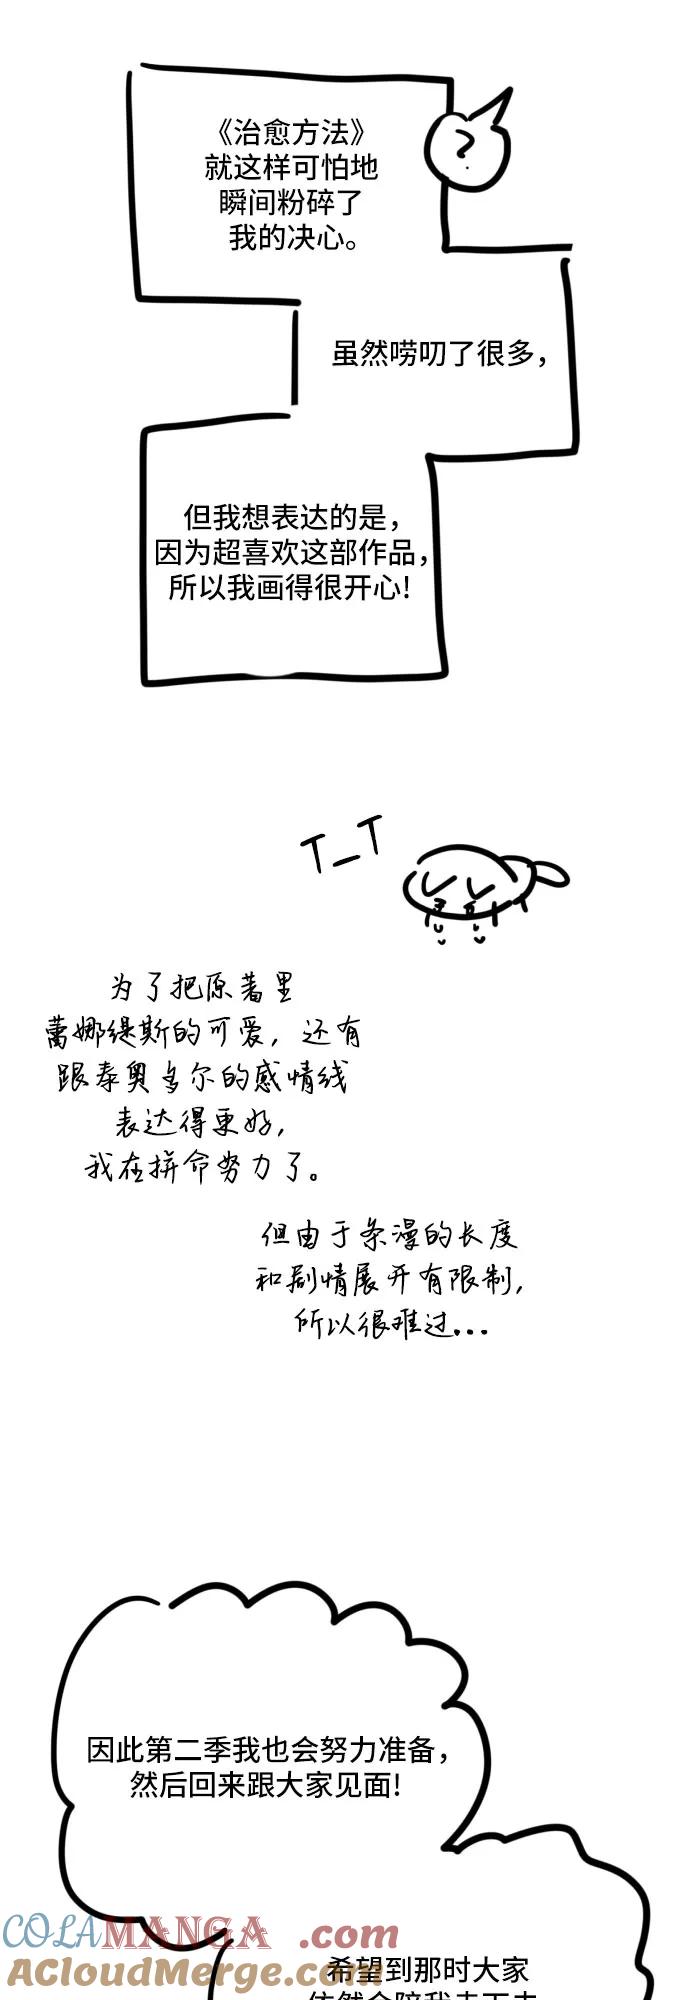 《治愈方法》
就这样可怕地
瞬间粉碎了
我的决心。
?
虽然唠叨了很多，
但我想表达的是，
因为超喜欢这部作品，
所以我画得很开心!
T_T
为了把原著里
蕾娜缇斯的可爱，还有
跟泰奥多尔的感情线
表达得更好，
我在拼命努力了。
但由于条漫的长度
和剧情展开有限制，
所以很难过...
因此第二季我也会努力准备，
然后回来跟大家见面!
COLAMANGA.com
AcloudMerge.com
希望到那时大家
依然会陪我走下去